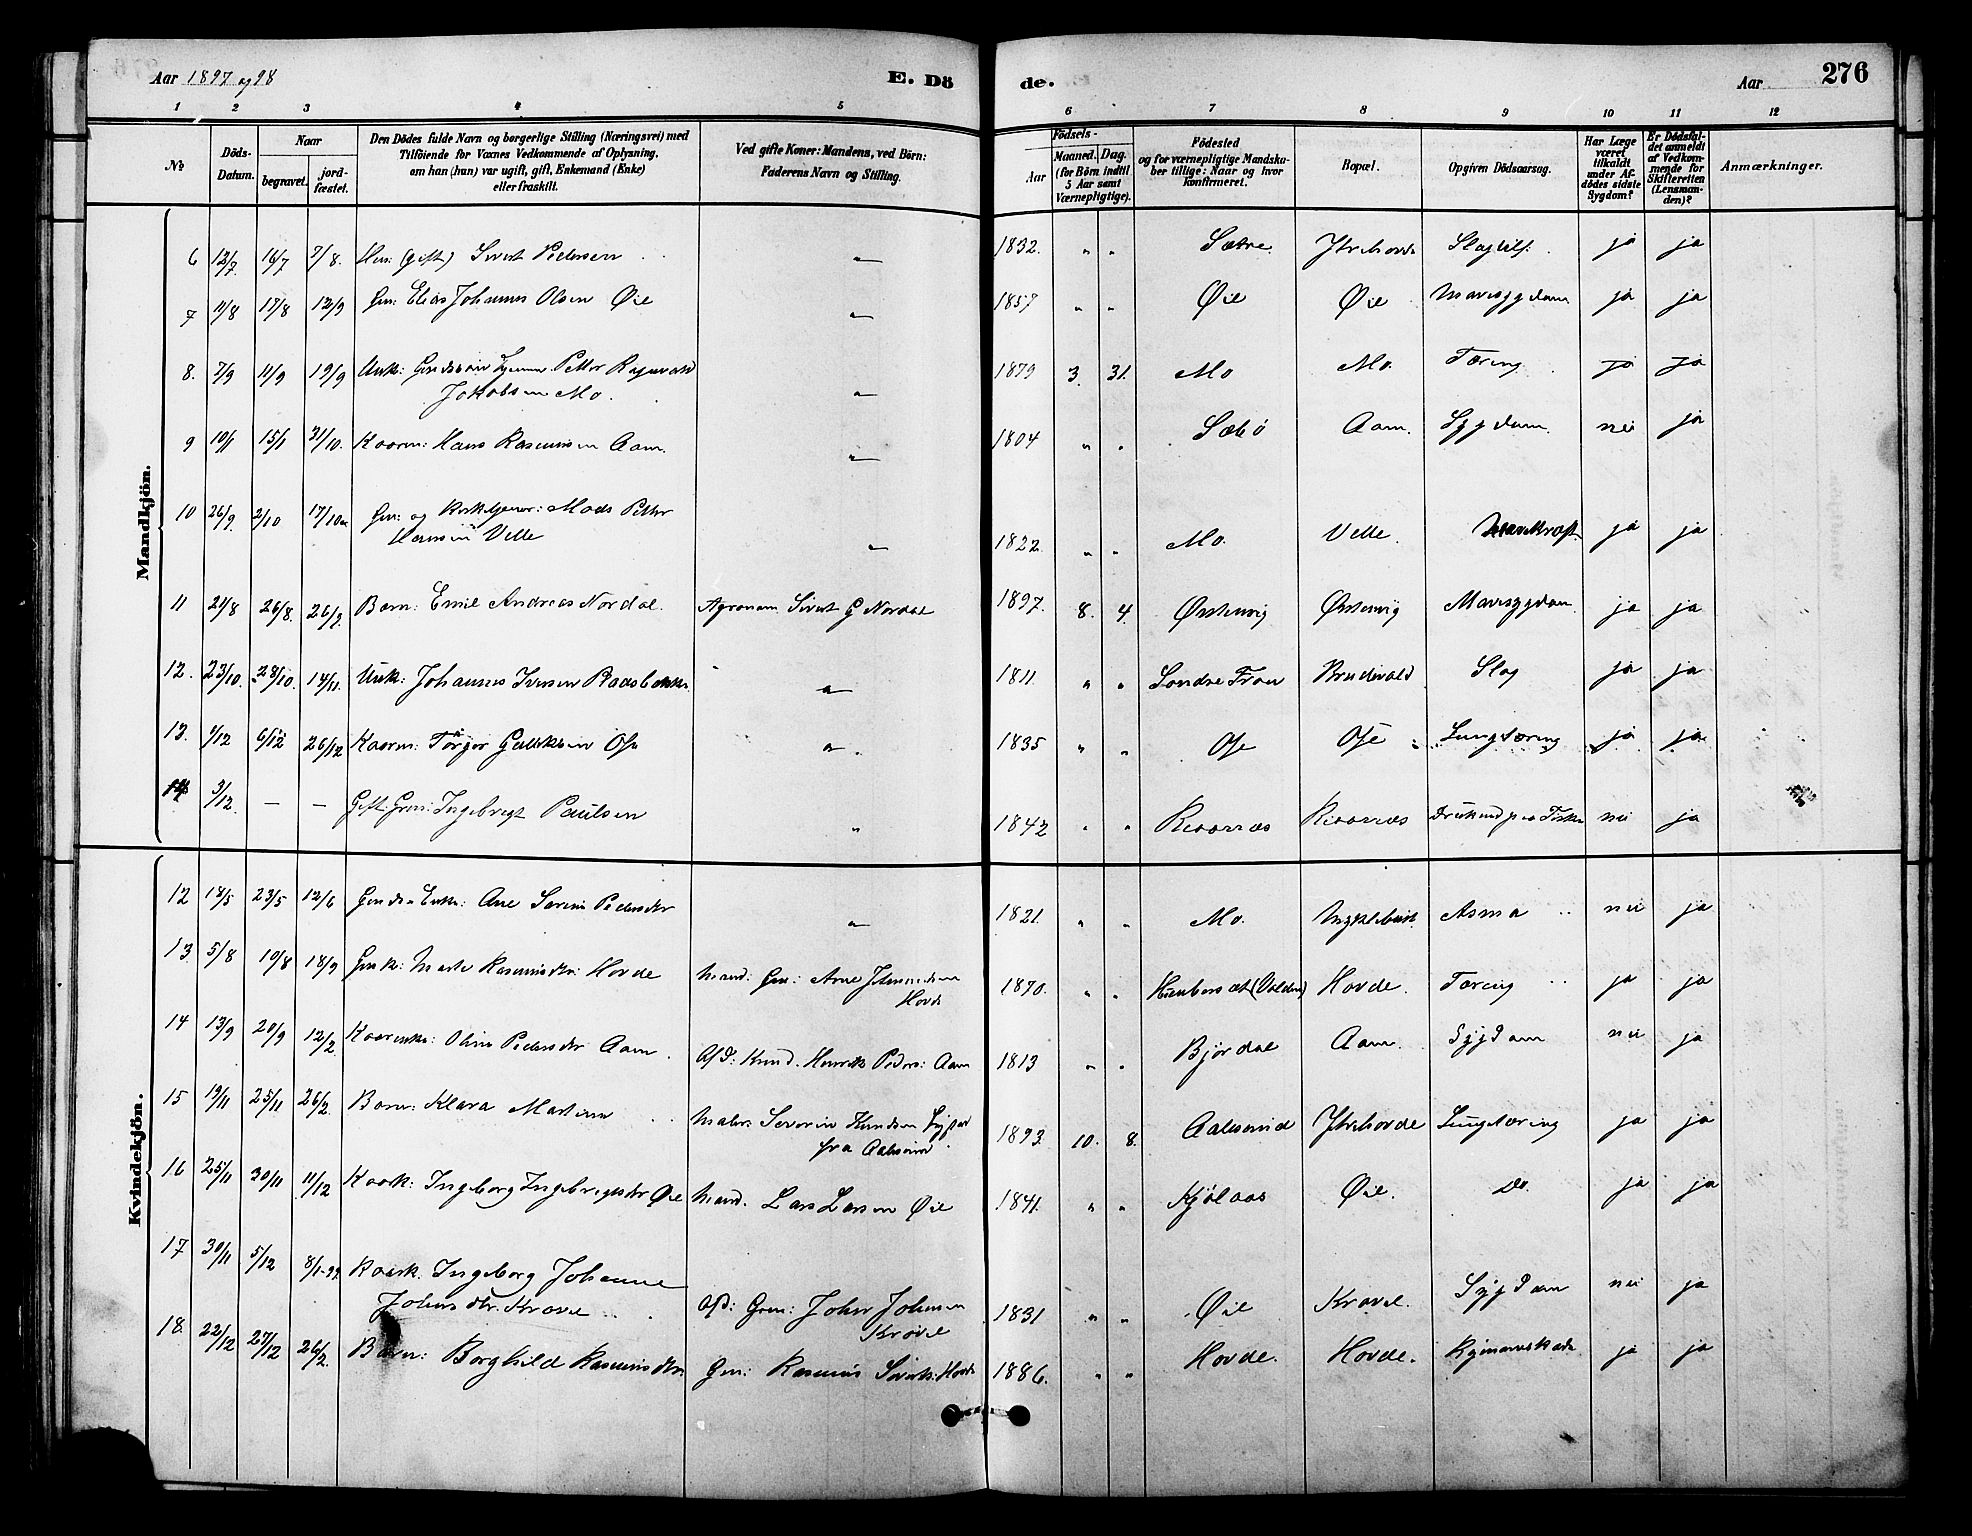 Aar 1897 og 98
E. Dö
de.
Aar
276
1 2 3 4 5 6 7 8 9 10 11 12
No
Döds-Datum.
Naar
begravet.
jord-fæstet.
Den Dödes fulde Navn og borgerlige Stilling (Næringsvei) med
Tilföiende for Voxnes Vedkommende af Oplysning,
om han (hun) var ugift, gift, Enkemand (Enke)
eller fraskilt.
Ved gifte Koner: Mandens, ved Börn:
Faderens Navn og Stilling.
Födsels-
Aar
Maaned. Dag.
(for Börn indtil
5 Aar samt
Værnepligtige).
Födested
og for værnepligtige Mandska-
ber tillige: Naar og hvor
konfirmeret.
Bopæl.
Opgiven Dödsaarsag.
Har Læge
været
tilkaldt
under Af-
dödes sidste
Sygdom?
Er Dödsfal-
det anmeldt
af Vedkom-
mende for
Skifteretten
(Lensman-
den)?
Anmærkninger.
Mandkjön.
6 12/7. 16/7 7/8. (gift) Sivert Pedersen " 1832. " " Sætre Ytrehovde ja ja
7 11/8 17/8 12/9 Gm: Elias Johannes Olsen Øie " 1857 " " Øie Øie Mavesygdom ja ja
8. 7/9 11/9 19/9 Petter
Jakobsen Mo. " 1879 3. 31. Mo Mo. Tæring ja ja
9 10/1 15/1 31/10. Kaarm: Hans Rasmussen Aam. " 1804 " " Sæbø Aam. Sygdom. nei ja
10 26/9. 2/10 17/10 Gm: og Kirketjener: Mads Petter
Hansen Velle " 1822. " " Mo. Velle. ja ja
11 21/8 26/8. 26/9. Barn: Emil Andreas Nordal. Agronom Sivert G Nordal 1897. 8. 4. Ørstenvig Ørstenvig Mavesygdom ja ja
12. 23/10. 28/10. 14/11. Johannes Iversen " 1811. " " Søndre Fron Brudevold Slag ja ja
13. 1/12 6/12 26/12 Kaarm: " 1835 " " Ose Ose Lungetæring ja ja
14 3/12. — — Gift Gm: Ingebrigt Paulsen " 1842 " " nei ja
Kvindekjön.
12 18/5 23/5 12/6 Ane Serine Pedersdtr " 1821. " " Mo. Myklebust Asma nei ja
13. 5/8 10/8 18/9 Gmk: Marte Rasmusdtr: Hovde Mand: Gm: Arne
Hovde 1870. " " (Volden) Hovde. Tæring ja ja
14 13/9 20/9 12/2. Oline Pedersdtr Aam. Afd: Knud Henrik Peders: Aam 1813 " " Bjørdal Aam. Sygdom nei ja
15 19/11 25/11 26/2. Barn: Klara Martine Maler: Severin Knudsen
fra Aalesund. 1893. 10. 8. Aalesund Ytrehovde Lungetæring ja ja
16 25/11 30/11 11/12 Kaark: Ingeborg Ingebrigtsdtr Øie Mand. Lars Larsen Øie 1841. " " Kjølaas Øie. Do. ja ja
17 30/11 5/12 8/1-99 Kaark. Ingeborg Johanne
Johnsdtr. Krøvel Afd: Gm: John Johnsen
Krøvel 1831 " " Øie Krøvel. Sygdom nei ja
18. 22/12 27/12 26/2. Barn: Borghild Rasmusdtr. Gm: Rasmus Siverts: Hovde 1886. " " Hovde. Hovde. ja ja